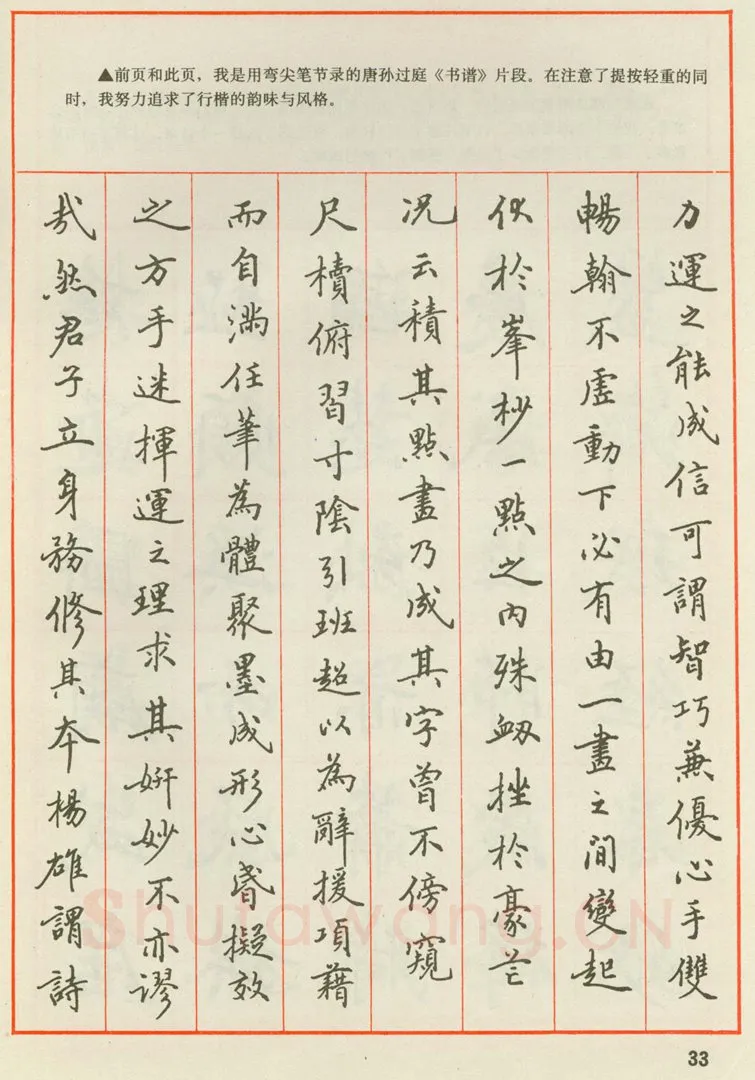 ▲前页和此页，我是用弯尖笔节录的唐孙过庭《书谱》片段。在注意了提按轻重的同
时，我努力追求了行楷的韵味与风格。
力運之能成信可謂智巧兼優心手雙
暢翰不虛動下必有由一畫之間變起
伏於峯杪一點之內殊衂挫於豪芒
况云積其點畫乃成其字曾不傍窺
尺櫝俯習寸陰引班超以為辭援項藉
而自滿任筆為體聚墨成形心昏擬效
之方手迷揮運之理求其姸妙不亦謬
哉然君子立身務修其本楊雄謂詩
Shufawang.CN
33